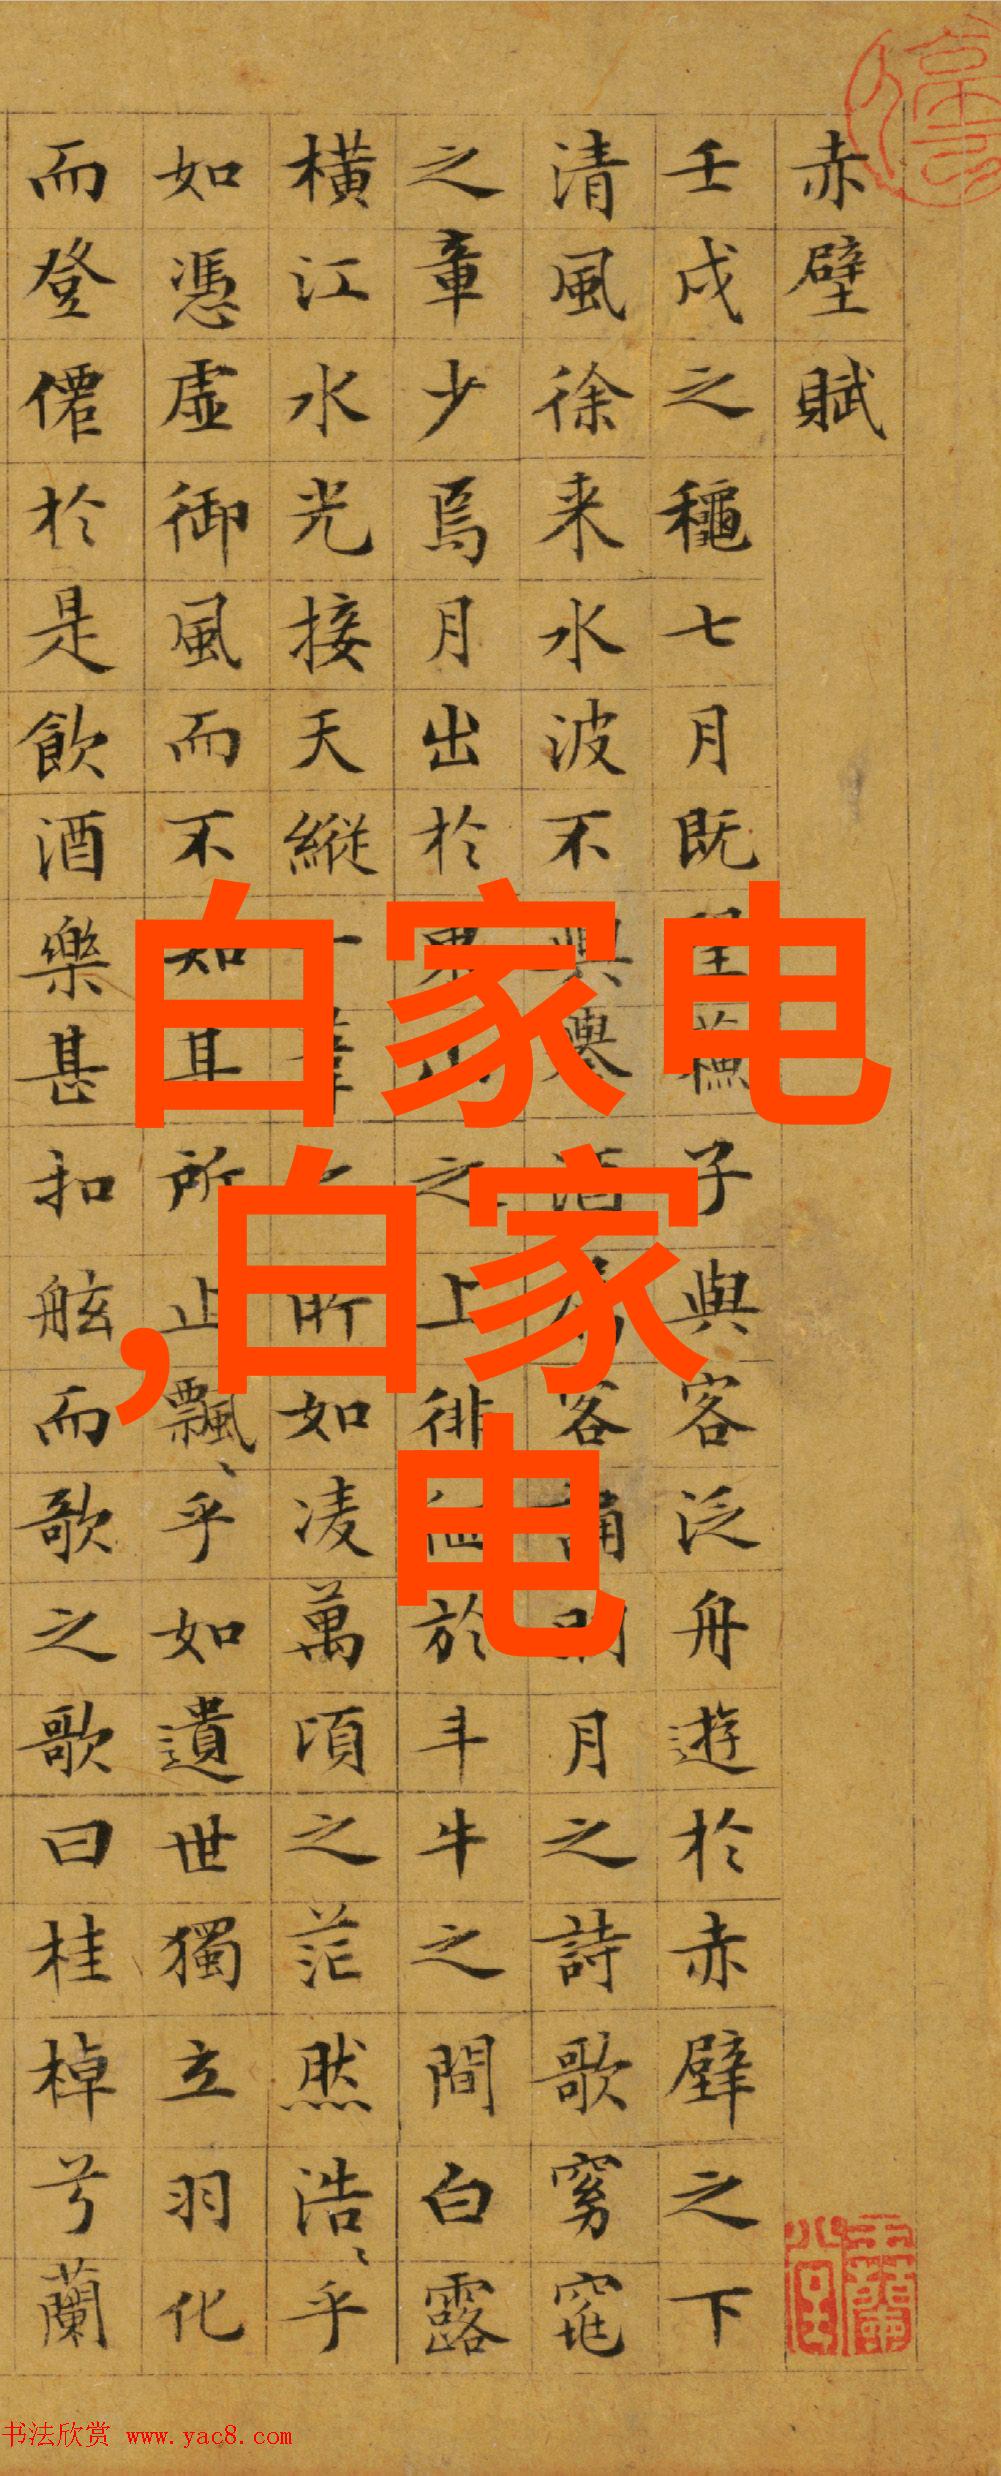 赤壁賦
壬戌之龝七月既望蘓子與客泛舟遊於赤壁之下
清風徐来水波不興舉酒属客誦明月之詩歌窈窕
之章少焉月出於東山之上徘徊於斗牛之間白露
橫江水光接天縱一葦之所如凌萬頃之茫然浩〻乎
如憑虛御風而不知其所止飄〻乎如遺世獨立羽化
而登僊於是飲酒樂甚扣舷而歌之歌曰桂棹兮蘭
白家电
,白家
电
书法欣赏 www.yac8.com